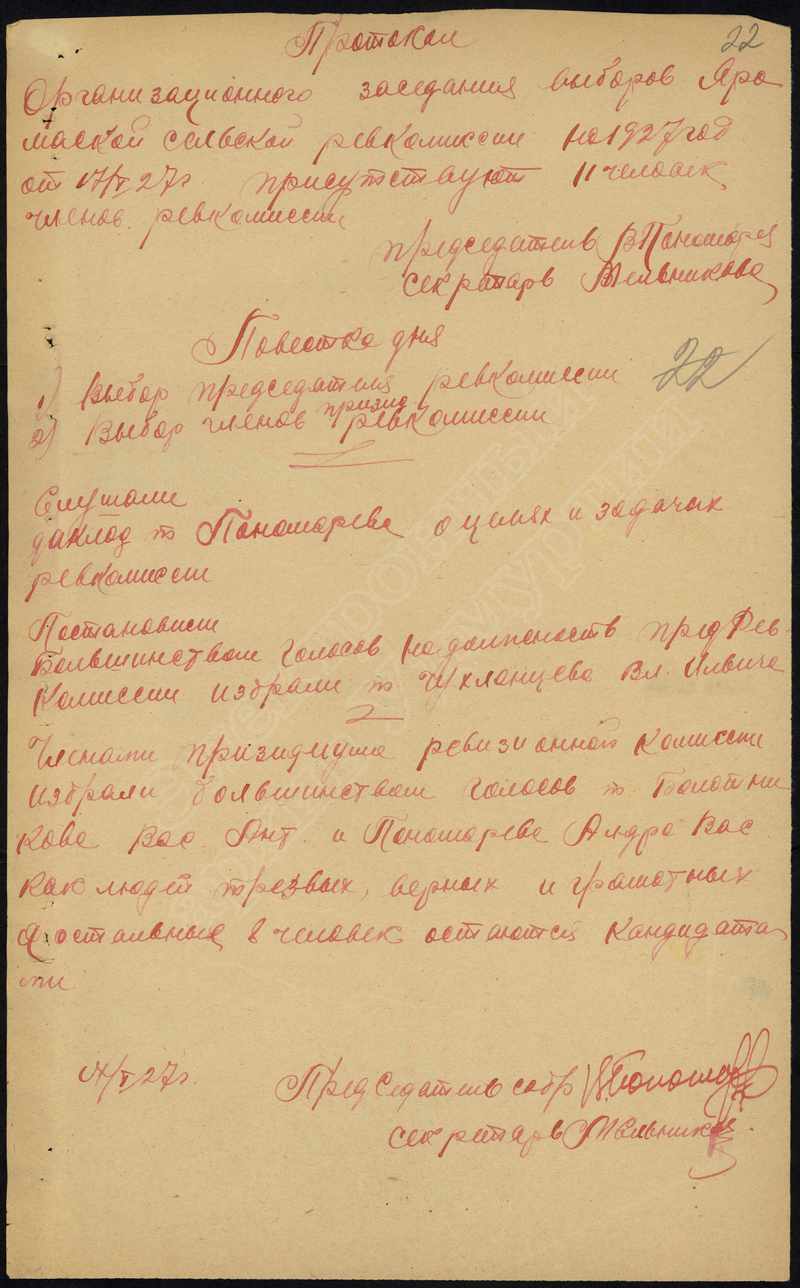 22
Протокол
Организационного заседания выборов Яро
маской сельской ревкомиссии на 1927 год
от 17/I 27г. присутствуют 11 человек
членов ревкомиссии
председатель В Пономарев
секретарь Мельникова
Повестка дня
22
1) Выбор председателя ревкомиссии
2) Выбор членов призид ревкомиссии
Слушали
даклад т Пономарева о целях и задачах
ревкомиссии
Постановили
Большинством голосов на должность пред Рев-
Комиссии избрали т Чухланцева Вл. Ильича
2
Членами призидиума ревизионной комиссии
избрали большинством голосов т. Болотни
кова Вас Ант. и Пономарева Алдра Вас
как людей трезвых, верных и грамотных
а остальные 8 человек остаются кандидата
ми
17/I 27г.
Председатель собр В. Пономарев
секретарь Мельникова